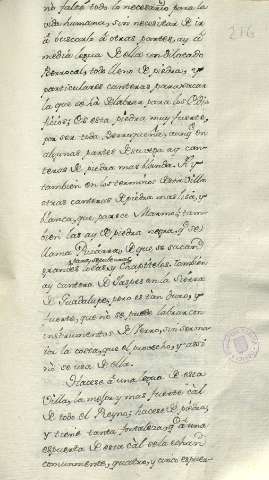 no falte todo lo necesario para la
vida humana, sin necesitar de ir
á buscarlo á otras partes, ay á
media legua de ella un dilatado
Berrocal, todo lleno de piedra, y
particulares canteras, para sacar
la que se há de labrar para los Edi
ficios; Es esta piedra muy fuerte,
por ser toda Berroqueña, aunq en
algunas partes de su cepa ay can
teras de piedra mas blanda. Ay
tambien en los terminos de esta Villa
otras canteras de piedra mas lisa, y
blanca, que parece Marmol; tam
bien las ay de piedra negra, q se
llama Pizarra, de que se sacan
para sepulturas
grandes losas, y Chapiteles. Tambien
ay cantera de Jaspes en la Sierra
de Guadalupe, pero es tan dura, y
fuerte, que no se puede labrar con
instrumentos de Yerro, sin ser ma
ior la costa, que el provecho, y assi
no se usa de ella.
Hacese á una legua de esta
Villa, la mejor y mas fuerte cal
de todo el Reyno; hacese de piedra,
y tiene tanta fortaleza, q á una
espuerta de esta cal se la echan
comunmente, quatro, y cinco espuer
216